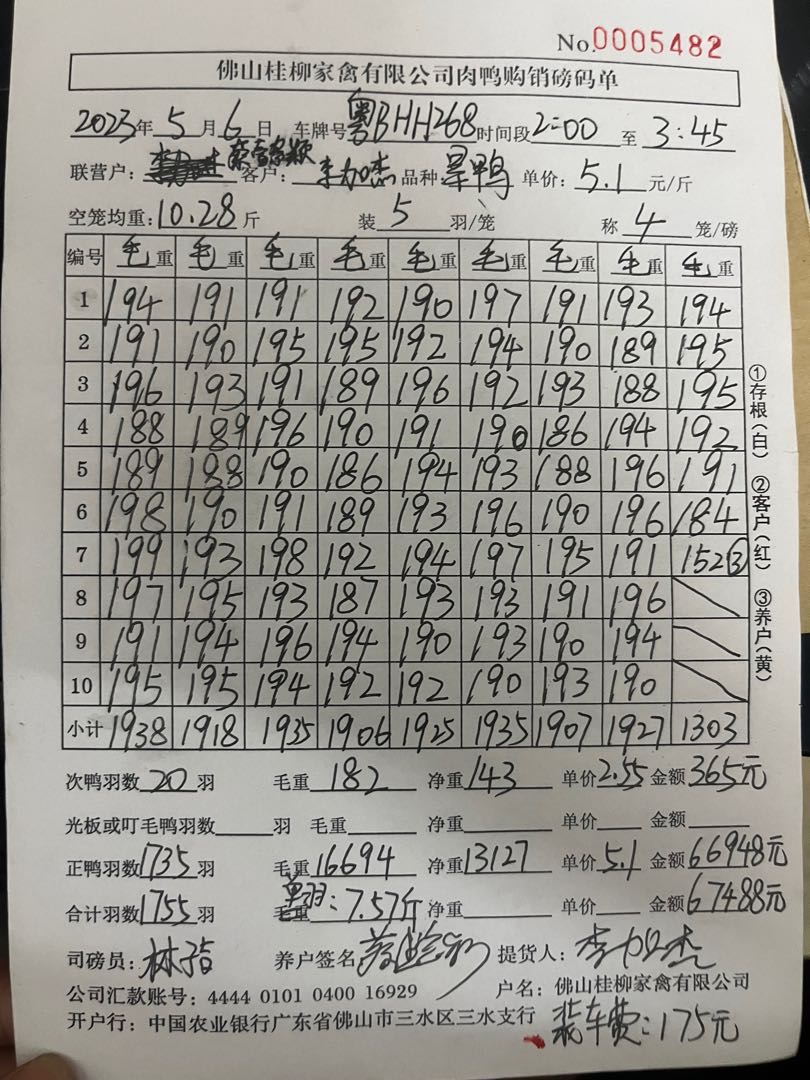 No.0005482
佛山桂柳家禽有限公司肉鸭购销磅码单
2023年5月6日 车牌号粤BHH268时间段2:00至3:45
联营户: 客户: 李加杰 品种 旱鸭 单价: 5.1 元/斤
空笼均重: 10.28 斤 装 5 羽/笼 称 4 笼/磅
编号 毛重 毛重 毛重 毛重 毛重 毛重 毛重 毛重 毛重
1 194 191 191 192 190 197 191 193 194
2 191 190 195 195 192 194 190 189 195
3 196 193 191 189 196 192 193 188 195
4 188 189 196 190 191 190 186 194 192
5 189 188 190 186 194 193 188 196 191
6 198 190 191 189 193 196 190 196 184
7 199 193 198 192 194 197 195 191 152③
8 197 195 193 187 193 193 191 196
9 191 194 196 194 190 193 190 194
10 195 195 194 192 192 190 193 190
小计 1938 1918 1935 1906 1925 1935 1907 1927 1303
①存根(白) ②客户(红) ③养户(黄)
次鸭羽数 20 羽 毛重 182 净重 143 单价 2.55 金额 365元
光板或叮毛鸭羽数 羽 毛重 净重 单价 金额
正鸭羽数 1735 羽 毛重 16694 净重 13127 单价 5.1 金额 66948元
合计羽数 1755 羽 毛重 单羽: 7.57斤 净重 单价 金额 67488元
司磅员: 林 养户签名 提货人: 李加杰
公司汇款账号: 4444 0101 0400 16929 户名: 佛山桂柳家禽有限公司
开户行: 中国农业银行广东省佛山市三水区三水支行 装车费: 175元